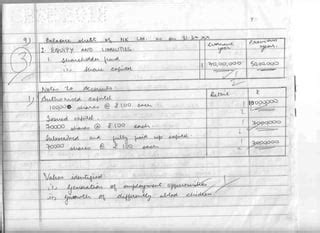 9) Balance sheet of NK Ltd as on 31.3.
Current year Previous year
I. EQUITY AND LIABILITIES
1. Shareholder fund
i. Share capital 1 70,00,000 50,00,000
2
Notes to Accounts
1) Detail ₹
Authorised capital
shares @ ₹ 100 each
Issued capital
70000 shares @ ₹ 100 each
Subscribed and fully paid up capital
70000 shares @ ₹ 100 each
Values identified
i. Generation of employment opportunities
ii. Growth of differently abled children
3